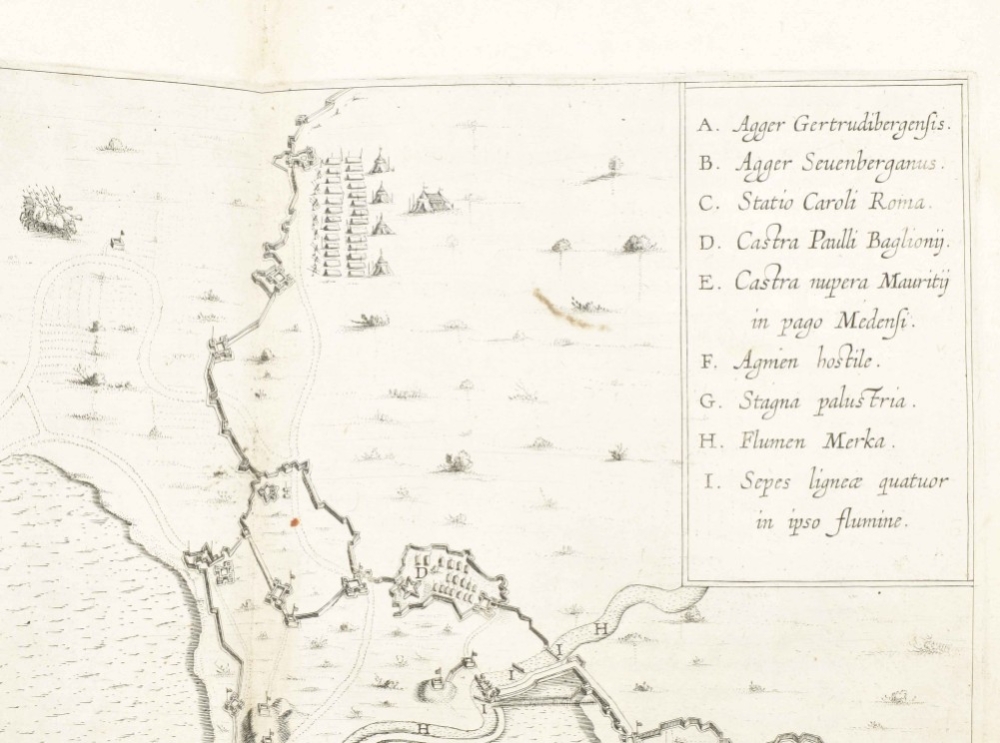 A. Agger Gertrudibergensis.
B. Agger Seuenberganus.
C. Statio Caroli Roma.
D. Castra Paulli Baglionij.
E. Castra nupera Mauritij
in pago Medensi.
F. Agmen hostile.
G. Stagna palustria.
H. Flumen Merka.
I. Sepes ligneæ quatuor
in ipso flumine.
D
H
I
I
I
H